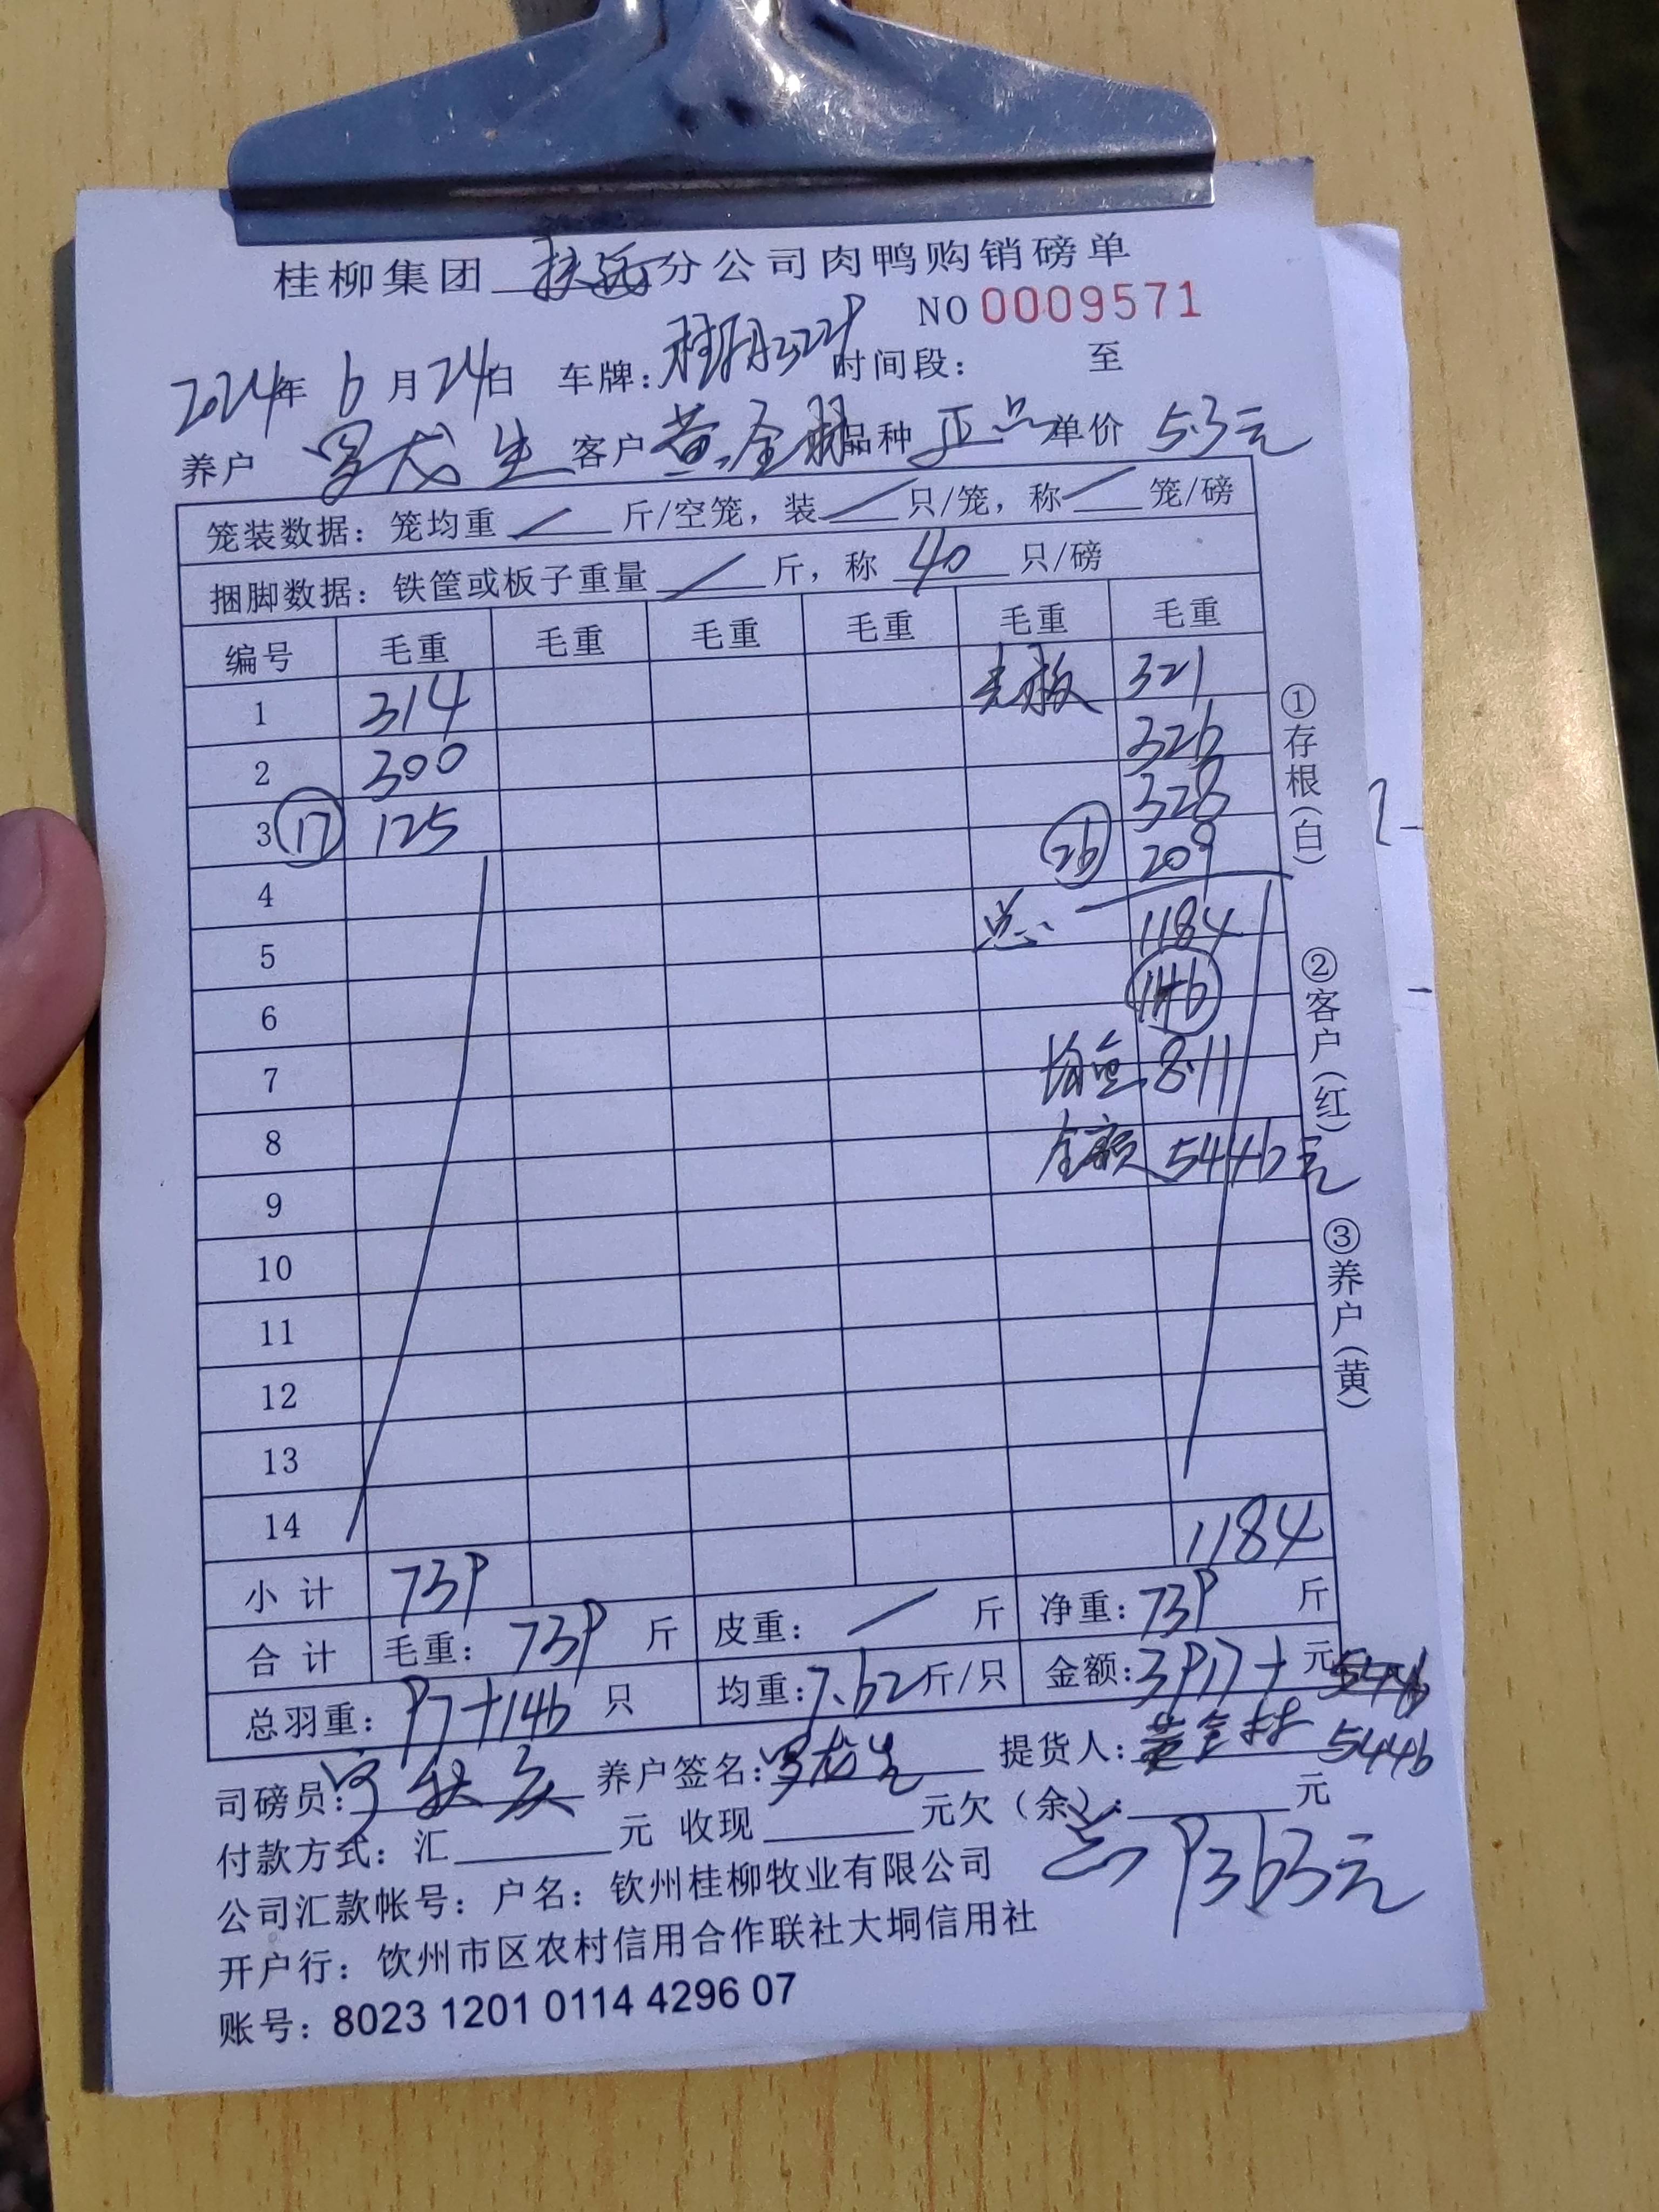 桂柳集团 扶绥 分公司肉鸭购销磅单
NO 0009571
2024年 6月24日 车牌: 时间段: 至
养户 罗龙生 客户 黄金 品种 正品 单价 5.3元
笼装数据: 笼均重 / 斤/空笼, 装 / 只/笼, 称 / 笼/磅
捆脚数据: 铁筐或板子重量 / 斤, 称 40 只/磅
编号 毛重 毛重 毛重 毛重 毛重 毛重
1 314 321
2 300 326
3 ⑰ 125 328
4 ㉖ 209
5 总: 1184
6 146
7 均重 8.11
8 金额 5446元
9
10
11
12
13
14 1184
小计 739
合计 毛重: 739 斤 皮重: / 斤 净重: 739 斤
总羽重: 97+146 只 均重: 7.62 斤/只 金额: 3917+ 元 5446
司磅员: 养户签名: 罗龙生 提货人: 5446
付款方式: 汇 元 收现 元欠(余): 元
公司汇款帐号: 户名: 钦州桂柳牧业有限公司 9363元
开户行: 钦州市区农村信用合作联社大垌信用社
账号: 8023 1201 0114 4296 07
①存根(白)
②客户(红)
③养户(黄)